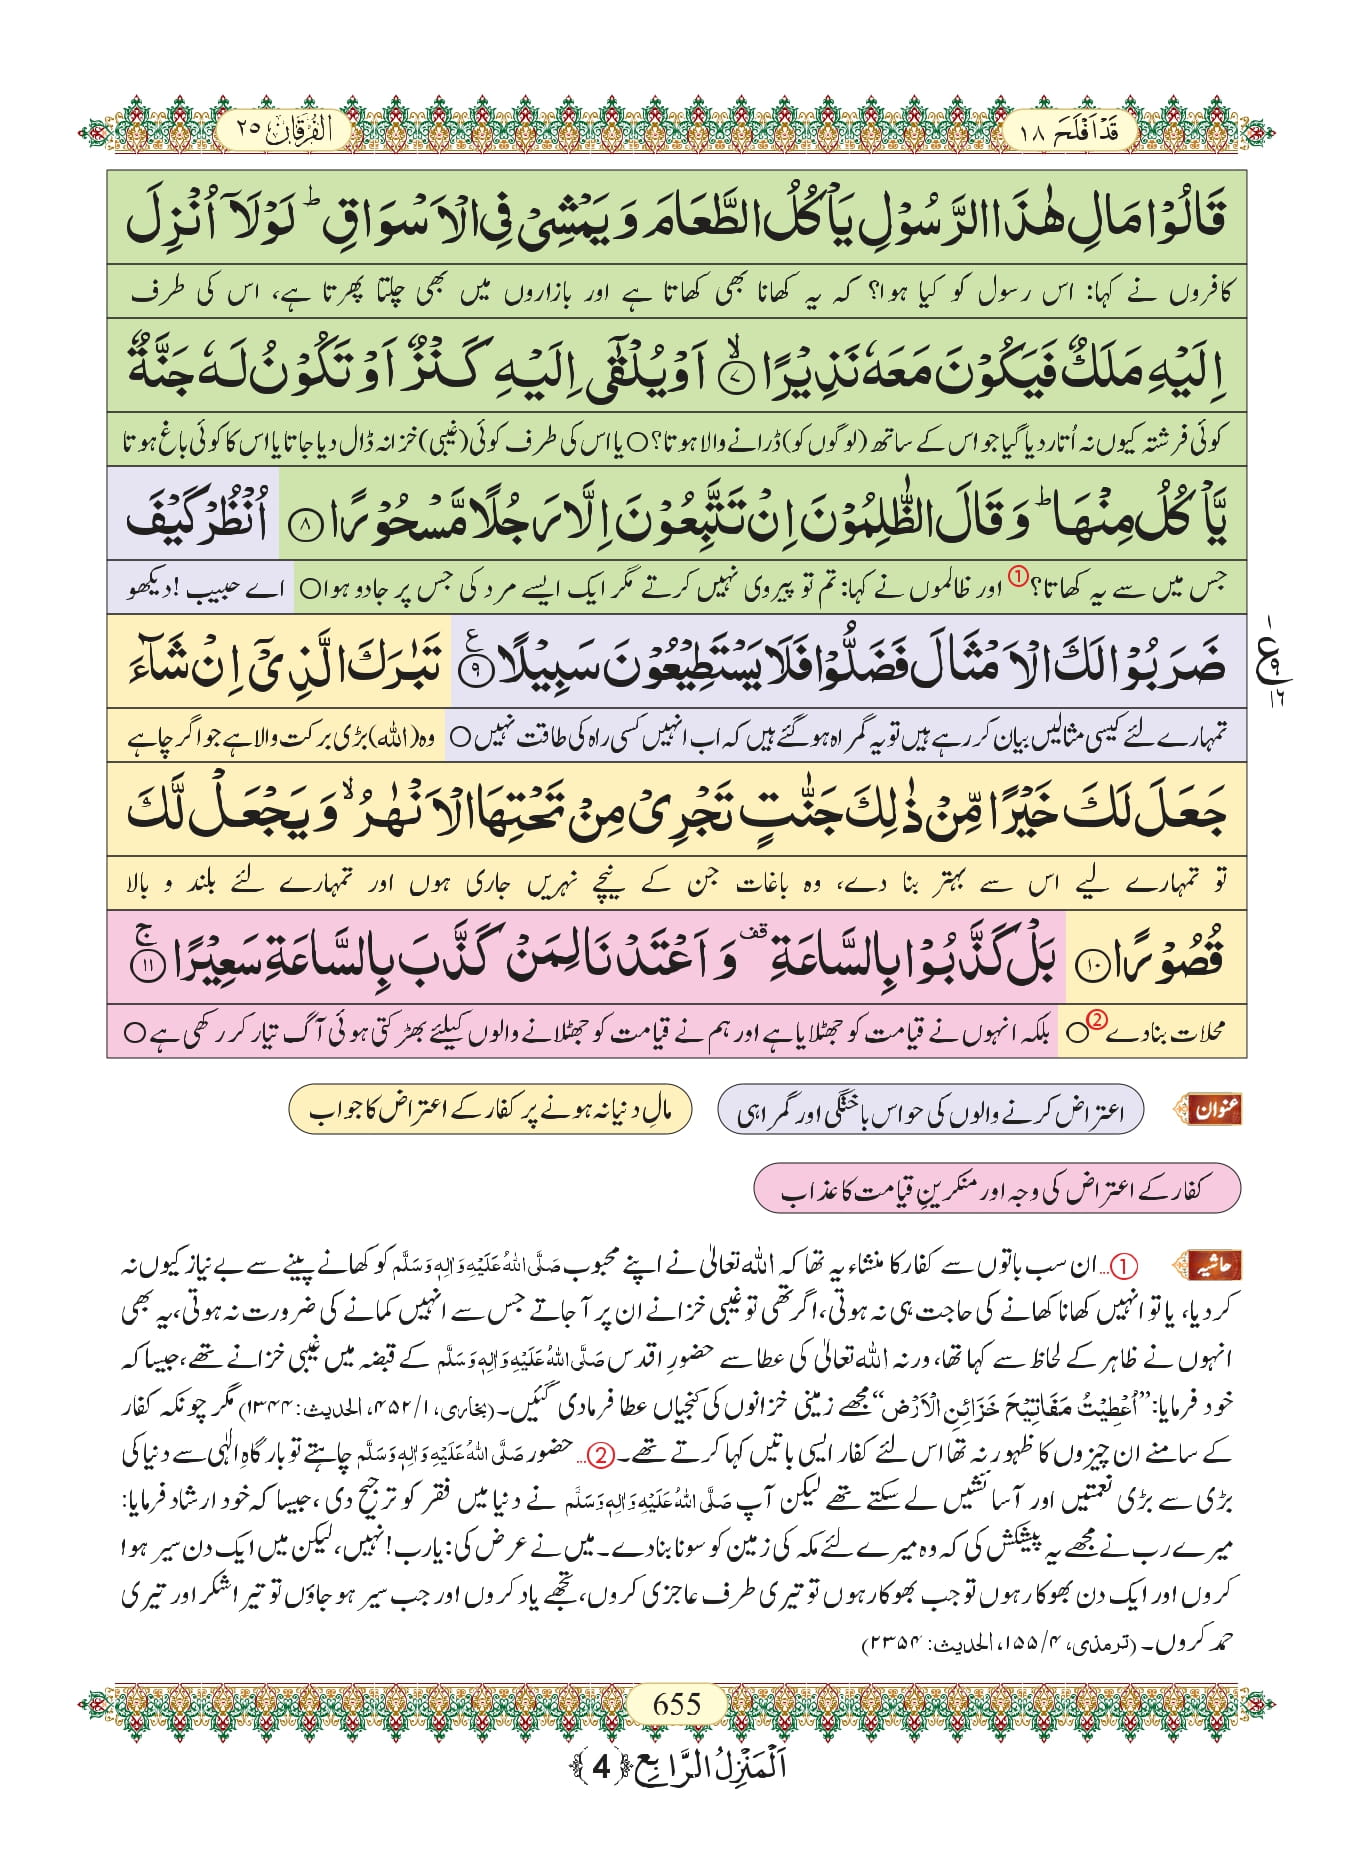 قَدْ اَفْلَحَ ١٨
الْفُرْقَان ٢٥
قَالُوْا مَالِ هٰذَا الرَّسُوْلِ یَاْكُلُ الطَّعَامَ وَ یَمْشِیْ فِی الْاَسْوَاقِؕ لَوْلَاۤ اُنْزِلَ
کافروں نے کہا: اس رسول کو کیا ہوا؟ کہ یہ کھانا بھی کھاتا ہے اور بازاروں میں بھی چلتا پھرتا ہے، اس کی طرف
اِلَیْهِ مَلَكٌ فَیَكُوْنَ مَعَهٗ نَذِیْرًاۙ ﴿۷﴾ اَوْ یُلْقٰۤی اِلَیْهِ كَنْزٌ اَوْ تَكُوْنُ لَهٗ جَنَّةٌ
کوئی فرشتہ کیوں نہ اُتار دیا گیا جو اس کے ساتھ (لوگوں کو) ڈرانے والا ہوتا؟○ یا اس کی طرف کوئی (غیبی) خزانہ ڈال دیا جاتا یا اس کا کوئی باغ ہوتا
یَّاْكُلُ مِنْهَاؕ وَ قَالَ الظّٰلِمُوْنَ اِنْ تَتَّبِعُوْنَ اِلَّا رَجُلًا مَّسْحُوْرًا ﴿۸﴾ اُنْظُرْ كَیْفَ
جس میں سے یہ کھاتا؟① اور ظالموں نے کہا: تم تو پیروی نہیں کرتے مگر ایک ایسے مرد کی جس پر جادو ہوا○ اے حبیب! دیکھو
ضَرَبُوْا لَكَ الْاَمْثَالَ فَضَلُّوْا فَلَا یَسْتَطِیْعُوْنَ سَبِیْلًا ﴿۹﴾ ع تَبٰرَكَ الَّذِیْۤ اِنْ شَآءَ
ع ۹ ۱۶
تمہارے لئے کیسی مثالیں بیان کر رہے ہیں تو یہ گمراہ ہو گئے ہیں کہ اب انہیں کسی راہ کی طاقت نہیں○ وہ (اللہ) بڑی برکت والا ہے جو اگر چاہے
جَعَلَ لَكَ خَیْرًا مِّنْ ذٰلِكَ جَنّٰتٍ تَجْرِیْ مِنْ تَحْتِهَا الْاَنْهٰرُۙ وَ یَجْعَلْ لَّكَ
تو تمہارے لیے اس سے بہتر بنا دے، وہ باغات جن کے نیچے نہریں جاری ہوں اور تمہارے لئے بلند و بالا
قُصُوْرًا ﴿۱۰﴾ بَلْ كَذَّبُوْا بِالسَّاعَةِ قف وَ اَعْتَدْنَا لِمَنْ كَذَّبَ بِالسَّاعَةِ سَعِیْرًاۚ ﴿۱۱﴾
محلات بنا دے②○ بلکہ انہوں نے قیامت کو جھٹلایا ہے اور ہم نے قیامت کو جھٹلانے والوں کیلئے بھڑکتی ہوئی آگ تیار کر رکھی ہے○
عنوان اعتراض کرنے والوں کی حواس باختگی اور گمراہی مالِ دنیا نہ ہونے پر کفار کے اعتراض کا جواب
کفار کے اعتراض کی وجہ اور منکرینِ قیامت کا عذاب
حاشیہ ①... ان سب باتوں سے کفار کا منشاء یہ تھا کہ اللہ تعالیٰ نے اپنے محبوب صَلَّی اللہُ عَلَیْہِ وَاٰلِہٖ وَسَلَّم کو کھانے پینے سے بے نیاز کیوں نہ
کر دیا، یا تو انہیں کھانا کھانے کی حاجت ہی نہ ہوتی، اگر تھی تو غیبی خزانے ان پر آ جاتے جس سے انہیں کمانے کی ضرورت نہ ہوتی، یہ بھی
انہوں نے ظاہر کے لحاظ سے کہا تھا، ورنہ اللہ تعالیٰ کی عطا سے حضورِ اقدس صَلَّی اللہُ عَلَیْہِ وَاٰلِہٖ وَسَلَّم کے قبضہ میں غیبی خزانے تھے، جیسا کہ
خود فرمایا: ”اُعْطِيْتُ مَفَاتِيْحَ خَزَائِنِ الْاَرْضِ“ مجھے زمینی خزانوں کی کنجیاں عطا فرما دی گئیں۔ (بخاری، ۴۵۲/۱، الحدیث: ۱۳۴۴) مگر چونکہ کفار
کے سامنے ان چیزوں کا ظہور نہ تھا اس لئے کفار ایسی باتیں کہا کرتے تھے۔ ②... حضور صَلَّی اللہُ عَلَیْہِ وَاٰلِہٖ وَسَلَّم چاہتے تو بارگاہِ الٰہی سے دنیا کی
بڑی سے بڑی نعمتیں اور آسائشیں لے سکتے تھے لیکن آپ صَلَّی اللہُ عَلَیْہِ وَاٰلِہٖ وَسَلَّم نے دنیا میں فقر کو ترجیح دی، جیسا کہ خود ارشاد فرمایا:
میرے رب نے مجھے یہ پیشکش کی کہ وہ میرے لئے مکہ کی زمین کو سونا بنا دے۔ میں نے عرض کی: یارب! نہیں، لیکن میں ایک دن سیر ہوا
کروں اور ایک دن بھوکا رہوں تو جب بھوکا رہوں تو تیری طرف عاجزی کروں، تجھے یاد کروں اور جب سیر ہو جاؤں تو تیرا شکر اور تیری
حمد کروں۔ (ترمذی، ۱۵۵/۴، الحدیث: ۲۳۵۴)
655
اَلْمَنْزِلُ الرَّابِع ﴿4﴾